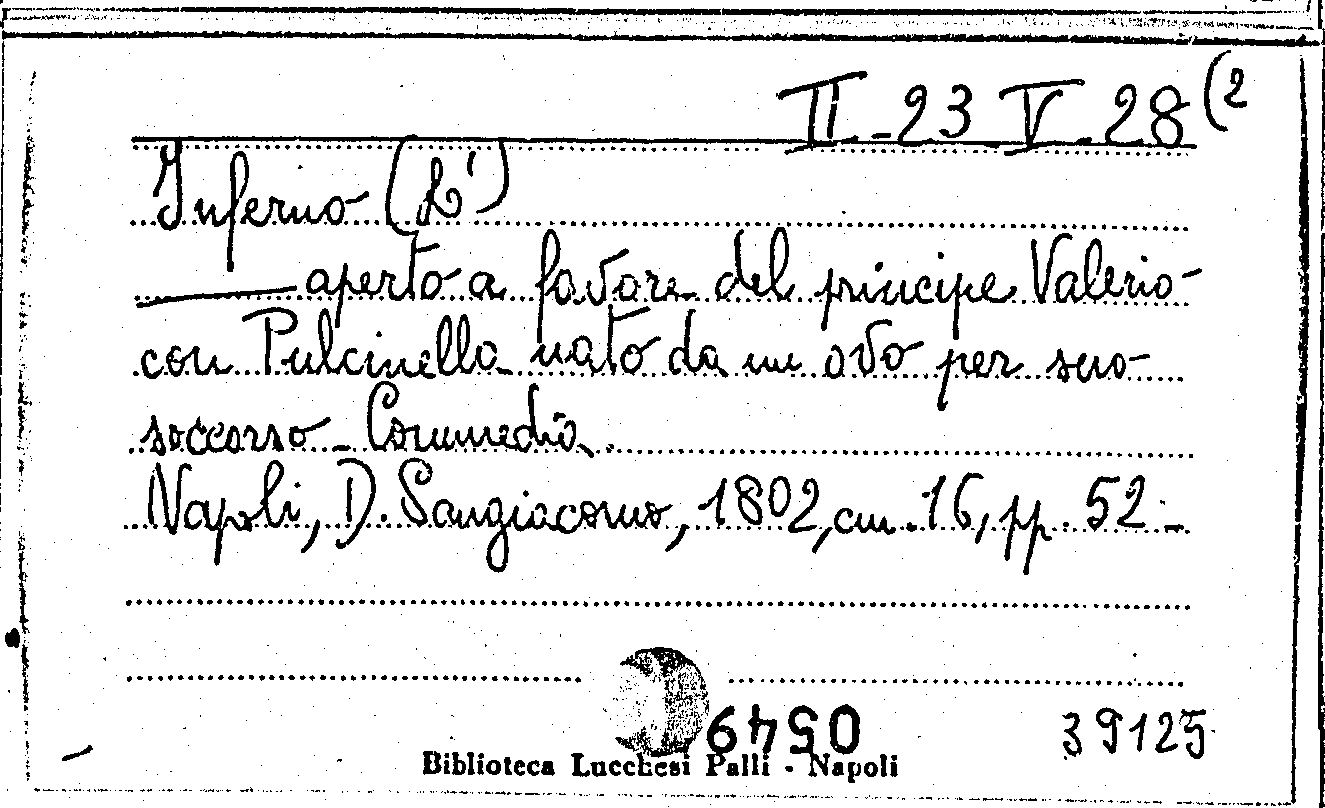 II-23 V-28(2
Inferno (L')
——— aperto a favore del principe Valerio
con Pulcinella nato da un ovo per suo
soccorso - Commedia.
Napoli, D. Sangiacomo, 1802, cm. 16, pp. 52 -
39125
Biblioteca Lucchesi Palli - Napoli